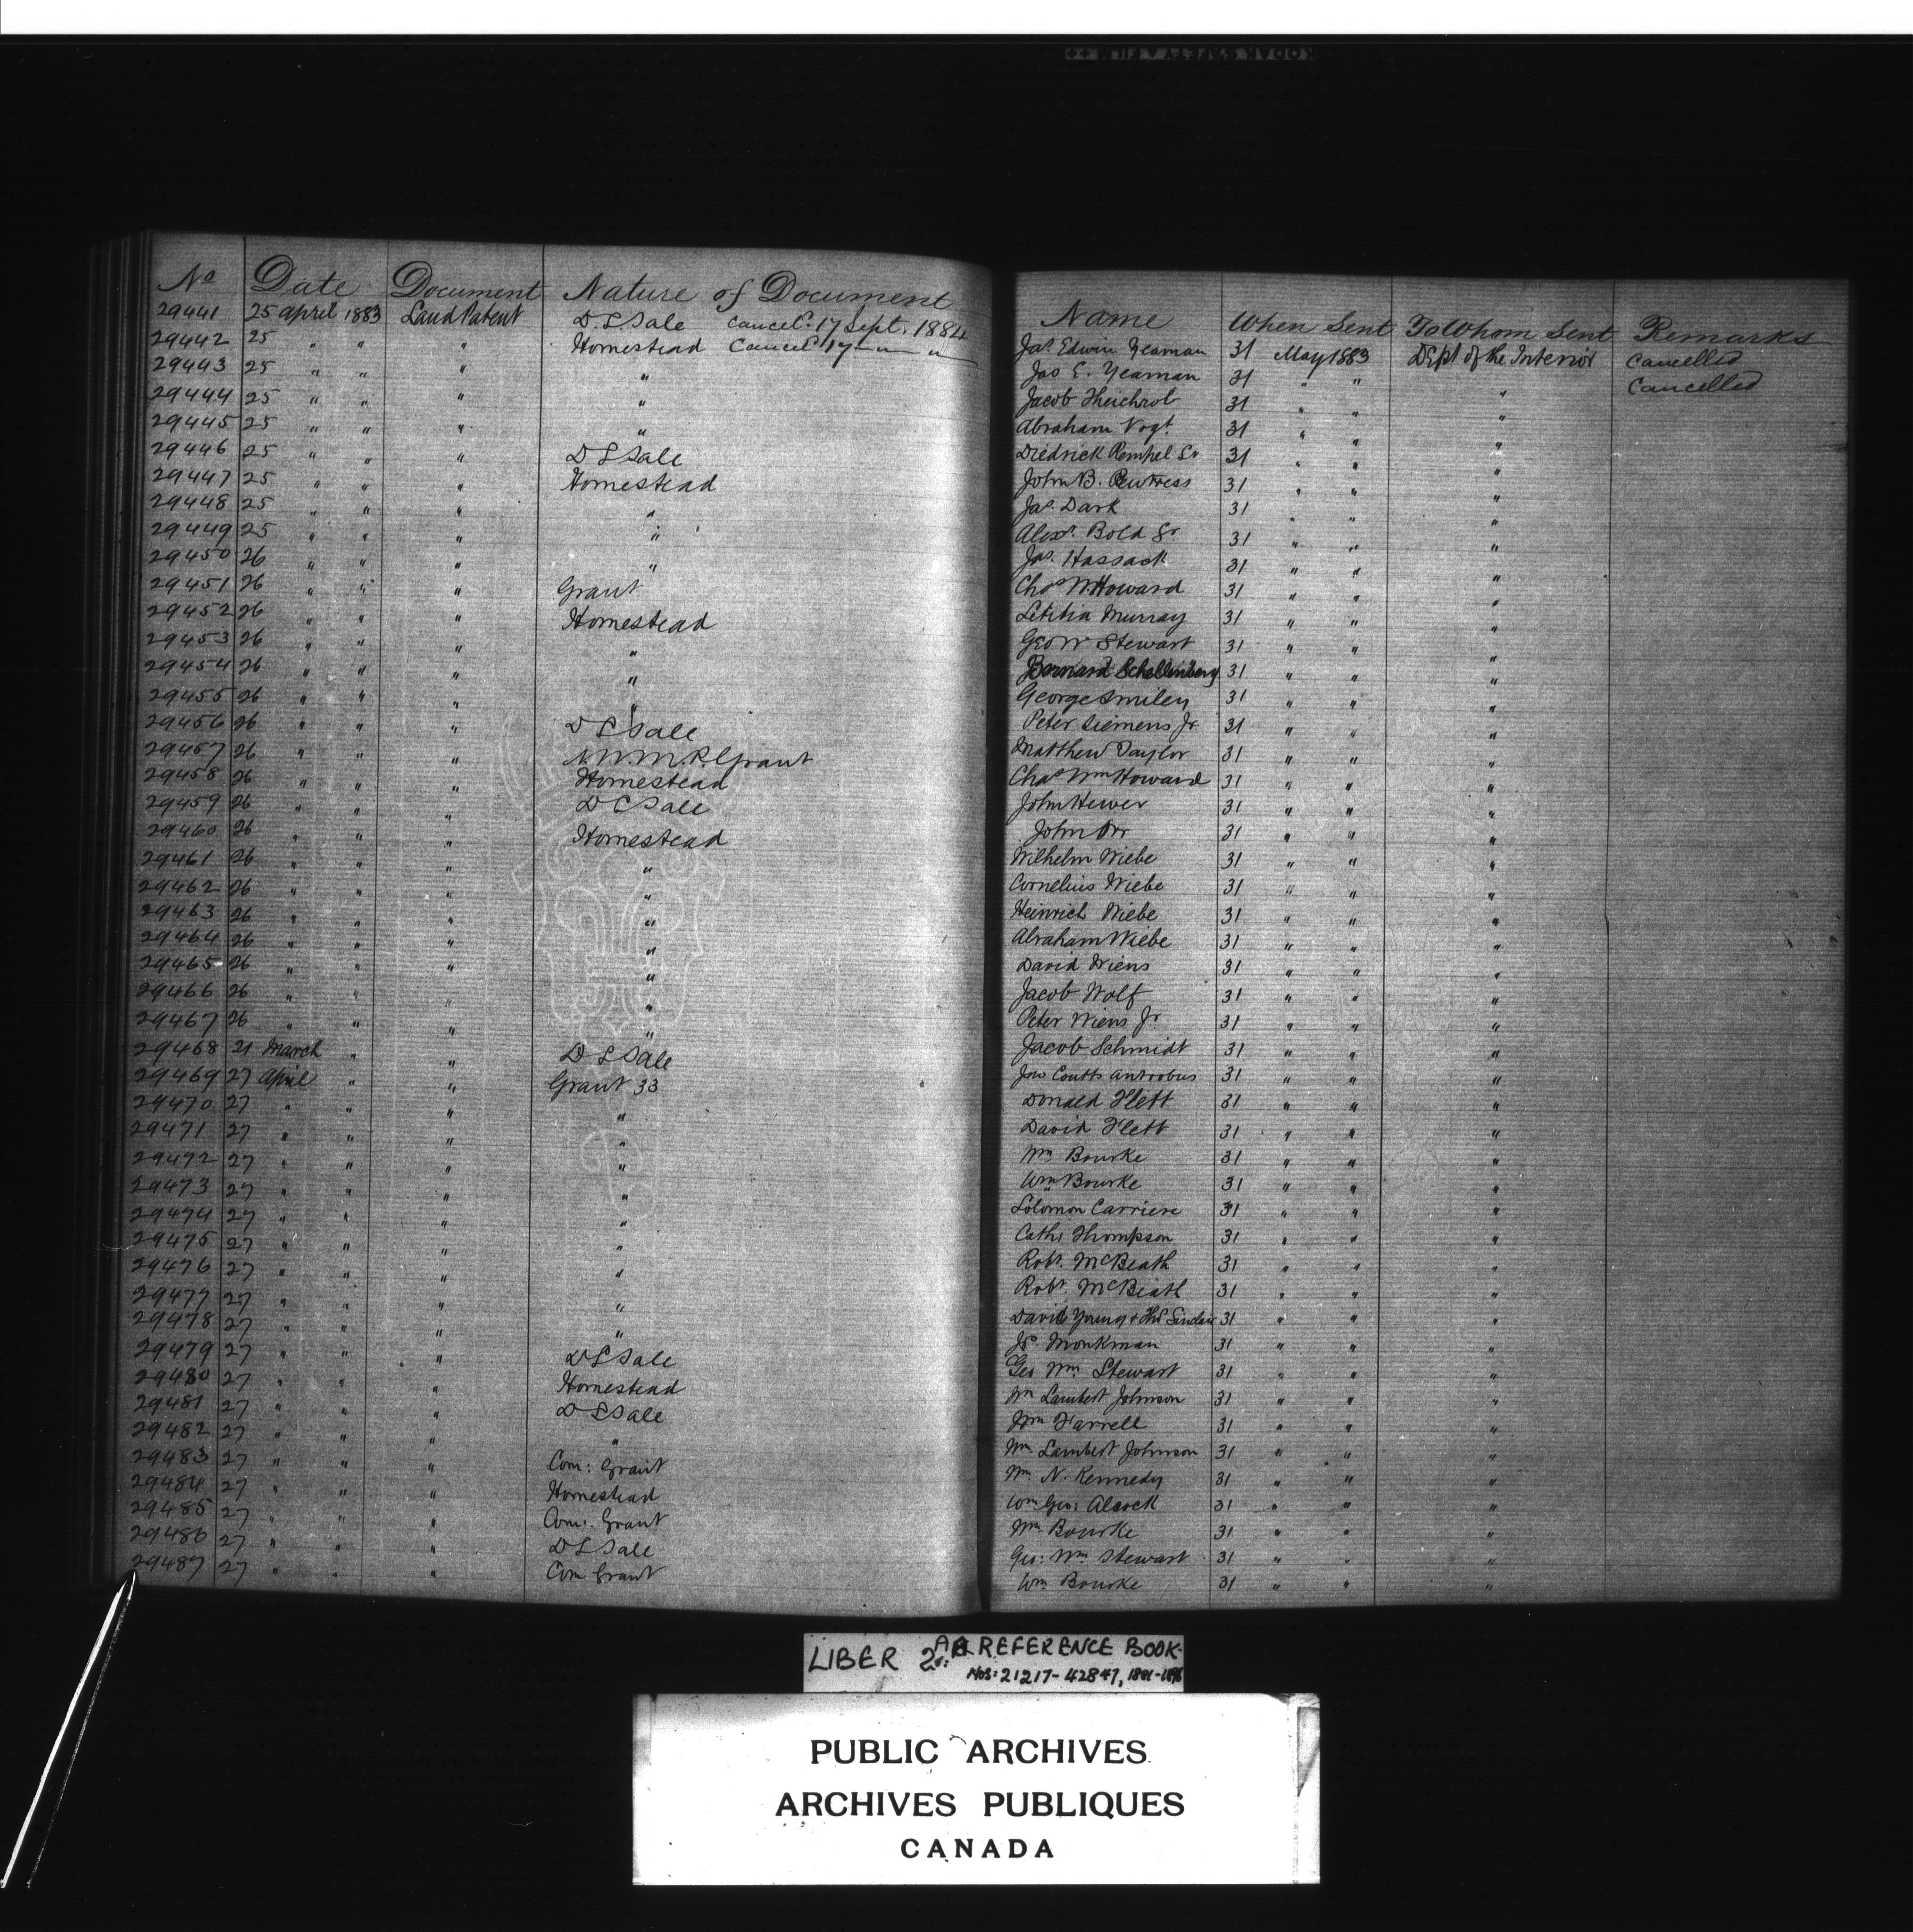 No Date Document Nature of Document
29441 25 april 1883 Land Patent D. L. Sale Cancel. 17 Sept. 1884
29442 25 " " " Homestead Cancel 17 " "
29443 25 " " " "
29444 25 " " " "
29445 25 " " " "
29446 25 " " " D L Sale
29447 25 " " " Homestead
29448 25 " " " "
29449 25 " " " "
29450 26 " " " "
29451 26 " " " Grant
29452 26 " " " Homestead
29453 26 " " " "
29454 26 " " " "
29455 26 " " " "
29456 26 " " " D L Sale
29457 26 " " " N.W.M.P. Grant
29458 26 " " " Homestead
29459 26 " " " D L Sale
29460 26 " " " Homestead
29461 26 " " " "
29462 26 " " " "
29463 26 " " " "
29464 26 " " " "
29465 26 " " " "
29466 26 " " " "
29467 26 " " " "
29468 21 March " " D L Sale
29469 27 April " " Grant 33
29470 27 " " " "
29471 27 " " " "
29472 27 " " " "
29473 27 " " " "
29474 27 " " " "
29475 27 " " " "
29476 27 " " " "
29477 27 " " " "
29478 27 " " " "
29479 27 " " " D L Sale
29480 27 " " " Homestead
29481 27 " " " D L Sale
29482 27 " " " "
29483 27 " " " Com: Grant
29484 27 " " " Homestead
29485 27 " " " Com: Grant
29486 27 " " " D L Sale
29487 27 " " " Com Grant
Name When Sent To Whom Sent Remarks
Jas. Edwin Yeaman 31 May 1883 Dept of the Interior Cancelled
Jas E. Yeaman 31 " " " Cancelled
Jacob 31 " " "
Abraham Vogt 31 " " "
Diedrick Remhel Sr 31 " " "
John B. Pewtress 31 " " "
Jas. Dark 31 " " "
Alexr. Bold Sr. 31 " " "
Jas. Hassack 31 " " "
Chas W. Howard 31 " " "
Letitia Murray 31 " " "
Geo W Stewart 31 " " "
Bernard Schellenberg 31 " " "
George Smiley 31 " " "
Peter Siemens Jr 31 " " "
Matthew Taylor 31 " " "
Chas Wm Howard 31 " " "
John Hewer 31 " " "
John Orr 31 " " "
Wilhelm Wiebe 31 " " "
Cornelius Wiebe 31 " " "
Heinrich Wiebe 31 " " "
Abraham Wiebe 31 " " "
David Wiens 31 " " "
Jacob Wolf 31 " " "
Peter Wiens Jr 31 " " "
Jacob Schmidt 31 " " "
Jno Coutts Antrobus 31 " " "
Donald Flett 31 " " "
David Flett 31 " " "
Wm Bourke 31 " " "
Wm Bourke 31 " " "
Solomon Carriere 31 " " "
Cathr Thompson 31 " " "
Robt. McBeath 31 " " "
Robt. McBeath 31 " " "
David Young & Thos Sinclair 31 " " "
Js. Monkman 31 " " "
Geo Wm Stewart 31 " " "
Wm Lambert Johnson 31 " " "
Wm Farrell 31 " " "
Wm Lambert Johnson 31 " " "
Wm N. Kennedy 31 " " "
Wm Geo: Alcock 31 " " "
Wm Bourke 31 " " "
Geo: Wm Stewart 31 " " "
Wm Bourke 31 " " "
LIBER 2 REFERENCE BOOK.
Nos: 21217-42847,
PUBLIC ARCHIVES
ARCHIVES PUBLIQUES
CANADA